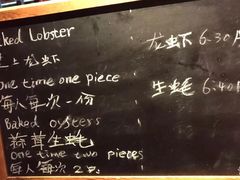 aked Lobster
上龙虾
one time one piece
每人每次一份
Baked oysters
蒜茸生蚝
one time two pieces
每人每次2
龙虾 6:30
生蚝 6:40